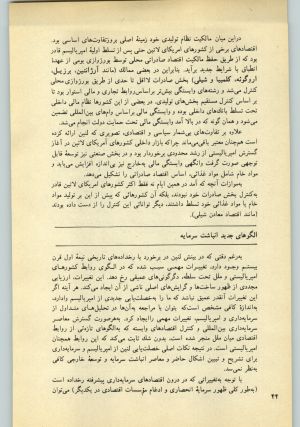 دراین میان مالکیت نظام تولیدی خود زمینهٔ اصلی بروزتفاوت‌های اساسی بود.
اقتصادهای برخی از کشورهای امریکای لاتین حتی پس از تسلط اولیهٔ امپریالیسم قادر
بود که از طریق حفظ مالکیت اقتصاد صادراتی محلی توسط بورژوازی بومی از عهدهٔ
انطباق با شرایط جدید برآید. بنابراین در بعضی ممالک (مانند آرژانتین، برزیل،
اروگوئه، کلمبیا و شیلی) بخش صادرات لااقل تا حدی از طریق بورژوازی‌محلی
کنترل می‌شد و رشته‌های وابستگی بیش‌تر براساس‌روابط تجاری و مالی استوار بود تا
بر اساس کنترل مستقیم بخش‌های تولیدی. در بعضی از این کشورها نظام مالی داخلی
تحت تسلط بانک‌های داخلی بوده و وابستگی مالی براساس وام‌های بین‌المللی تضمین
می‌شود و همان گونه که در بالا آمد وابستگی مالی تحت حمایت دولت انجام می‌شد.
علاوه بر تفاوت‌های بی‌شمار سیاسی و اقتصادی، تصویری که لنین ارائه کرده
است هم‌چنان معتبر باقی‌می‌ماند چراکه بازار داخلی کشورهای امریکای لاتین در آغاز
گسترش امپریالیستی از رشد محدودی برخوردار بود و در بخش صنعتی نیز توسعهٔ قابل
توجهی صورت گرفت وآنگهی وابستگی مالی به‌خارج نیز بی‌اندازه افزایش می‌یابد و
مواد خام شامل مواد غذایی، اساس اقتصاد صادراتی را تشکیل می‌دهد.
به‌موازات آنچه که آمد در همین ایام نه فقط اکثر کشورهای امریکای لاتین قادر
به‌کنترل بخش صادرات خود نبودند، بلکه آن کشورهائی که پیش از این بر تولید مواد
خام یا مواد غذائی خود تسلط داشتند، دیگر توانائی این کنترل را از دست داده بودند
(مانند اقتصاد معادن شیلی).
الگوهای جدید انباشت سرمایه
به‌رغم دقتی که در بینش لنین در برخورد با رخدادهای تاریخی نیمهٔ اول قرن
بیستم وجود دارد، تغییرات مهمی سبب شده که در الگوی روابط کشورهای
امپریالیستی و ملل تحت سلطه، دگرگونی‌های عمیقی رخ دهد. این تغییرات، ارزیابی
مجددی از ظهور ساخت‌ها و گرایش‌های اصلی ناشی از آن ایجاد می‌کند. هر آینه اگر
این تغییرات آنقدر عمیق نباشد که ما را به‌خصلت‌یابی جدیدی از امپریالیسم وادارد،
به‌اندازهٔ کافی مشخص است‌که بتوان با مراجعه به‌آن‌ها در تحلیل‌های متداول از
سرمایه‌داری و امپریالیسم، تغییرات مهمی راایجاد کرد. به‌هرصورت گسترش معاصر
سرمایه‌داری بین‌المللی و کنترل اقتصادهای وابسته که به‌الگوهای تازه‌ئی از روابط
اقتصادی میان ملل منجر شده است، بدون شک ثابت می‌کند که این روابط همچنان
امپریالیستی است. در نتیجه نکات اصلی خصلت‌یابی لنین از امپریالیسم و سرمایه‌داری
برای تشریح و تبیین اشکال حاضر و معاصر انباشت سرمایه و توسعهٔ خارجی کافی
به‌نظر نمی‌رسد.
با توجه به‌تغییراتی که در درون اقتصادهای سرمایه‌داری پیشرفته رخداده است
(به‌طور کلی ظهور سرمایهٔ انحصاری و ادغام مؤسسات اقتصادی در یکدیگر) می‌توان
۴۴